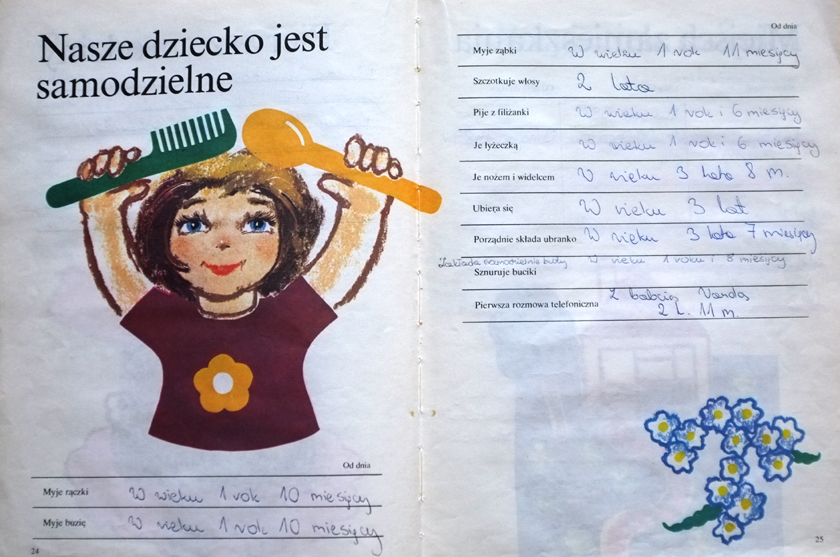 Nasze dziecko jest
samodzielne
Od dnia
Myje rączki W wieku 1 rok 10 miesięcy
Myje buzię W wieku 1 rok 10 miesięcy
24
Od dnia
Myje ząbki W wieku 1 rok 11 miesięcy
Szczotkuje włosy 2 lata
Pije z filiżanki W wieku 1 rok i 6 miesięcy
Je łyżeczką W wieku 1 rok i 6 miesięcy
Je nożem i widelcem W wieku 3 lata 8 m.
Ubiera się W wieku 3 lat
Porządnie składa ubranko W wieku 3 lata 7 miesięcy
Zakłada samodzielnie buty W wieku 1 roku i 8 miesięcy
Sznuruje buciki
Pierwsza rozmowa telefoniczna z babcią Wandą
2 l. 11 m.
25